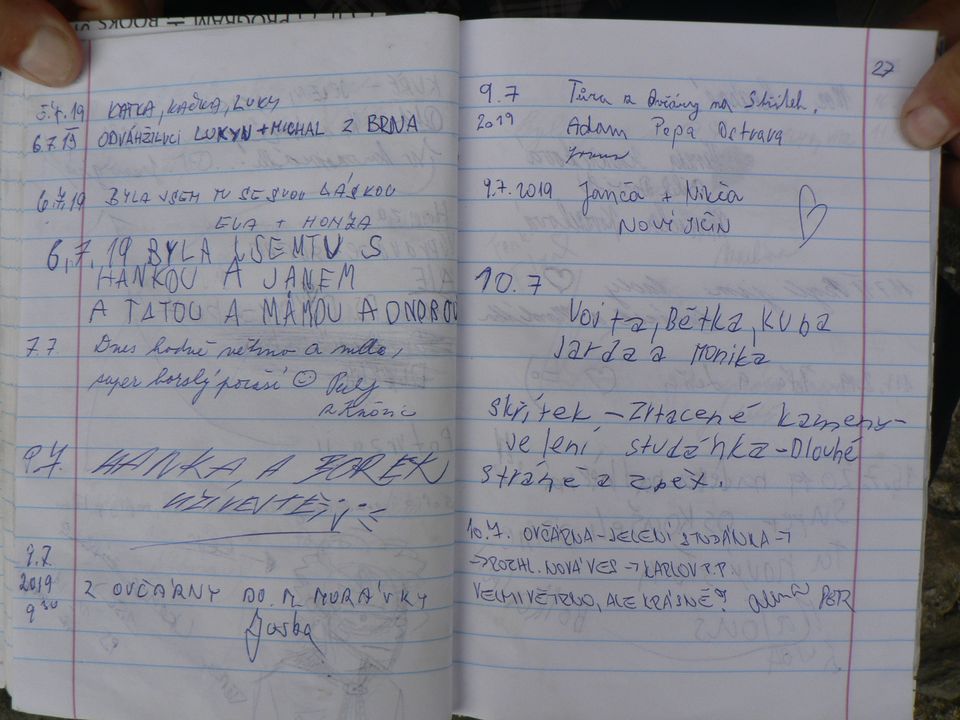 27
5.7.19 KATKA, KAČKA, LUKY
6.7.19 ODVÁŽLIVCI LUKYN + MICHAL Z BRNA
6.7.19 BYLA JSEM TU SE SVOU LÁSKOU
ELA + HONZA
6,7,19 BYLA JSEM TU S
HANKOU A JANEM
A TATOU A MÁMOU A ONDROU
7.7. Dnes hodně větrno a mlha,
super horský počasí ☺
HANKA, A BOREK
9.7.
2019
9 30 Z OVČÁRNY DO M. MORÁVKY
9.7 Túra z Ovčárny na Skřítek.
2019 Adam Pepa Ostrava
9.7.2019 Janča + Nikča
NOVÝ JIČÍN
10.7
Vojta, Bětka, Kuba
Jarda a Monika
skřítek - Ztracené kameny-
Jelení studánka - Dlouhé
stráně a zpět.
10.7. OVČÁRNA - JELENÍ STUDÁNKA →
→ ROZHL. NOVÁ VES → KARLOV P.P.
VELMI VĚTRNO, ALE KRÁSNĚ! PETR